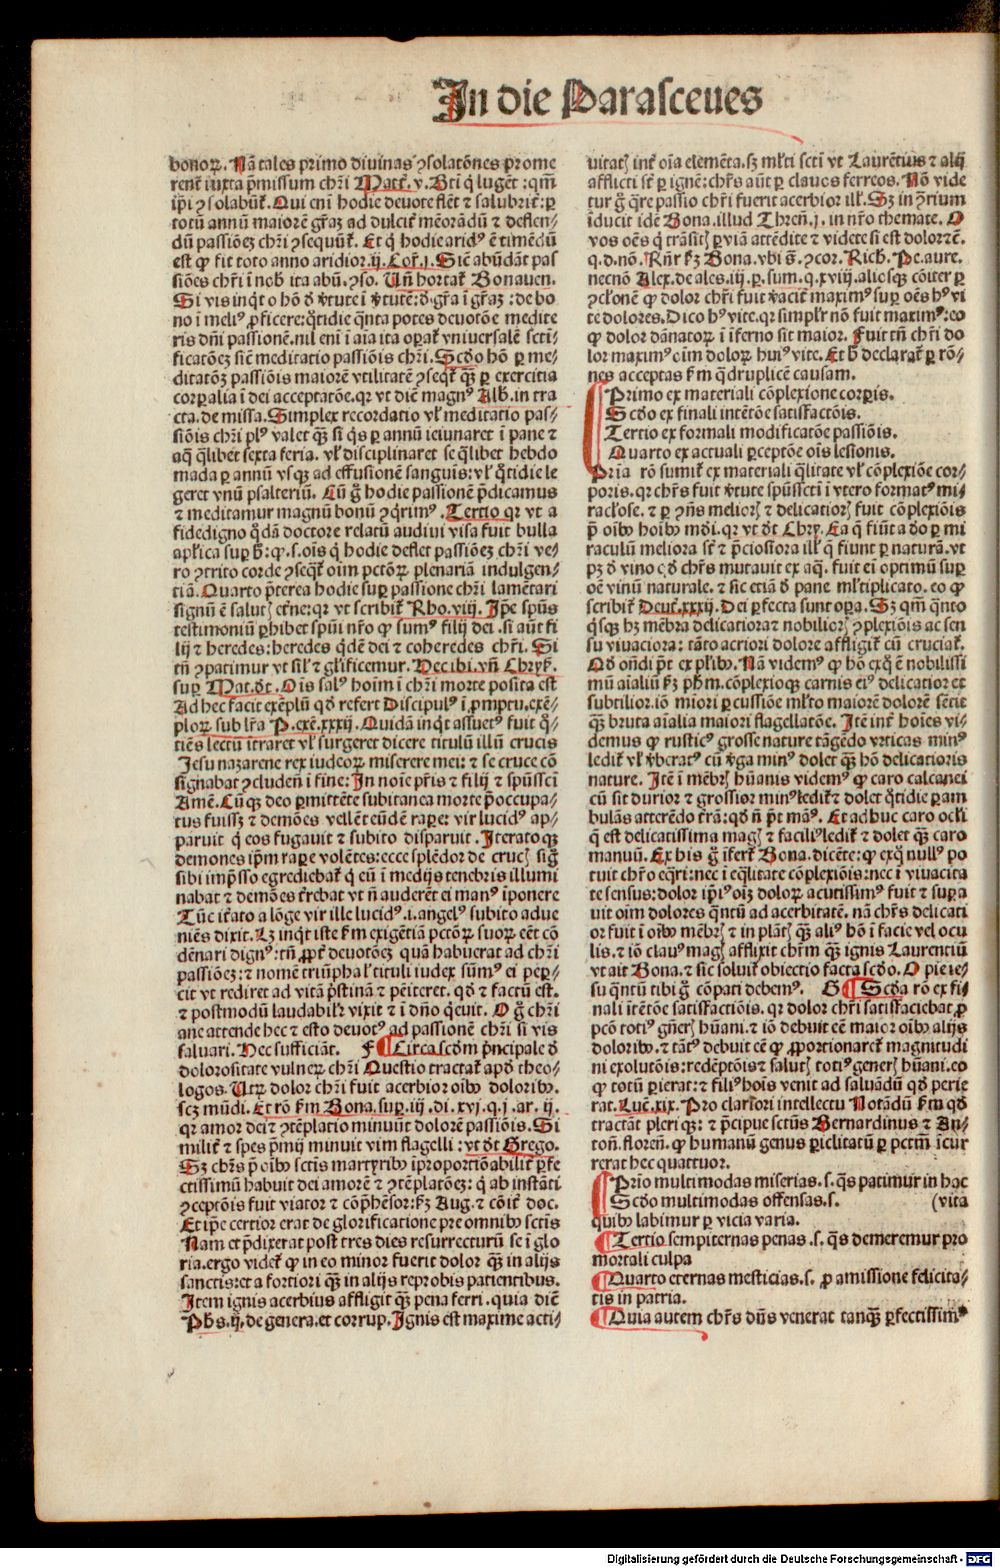 In die Parasceues
bonoꝝ. Nã tales primo diuinas ꝯsolatõnes prome
renť iuxta p̃missum chr̃i Matť. v. Bti q̃ lugẽt : qm̃
ip̃i ꝯsolabũť. Qui em̃ hodie deuote flẽt ⁊ salubriť: ꝑ
totũ annũ maiorẽ gr̃aꝫ ad dulciť meõrãdũ ⁊ deflen-
dũ passiõeꝫ chr̃i ꝯsequũť. Et q̃ hodie aridꝰ ẽ timẽdũ
est ꝙ fit toto anno aridior. ij. Coꝝ. j. Sic̃ abũdãt pas
siões chr̃i ĩ nob̃ ita abũ. ꝯso. Un̄ hortať Bonauen.
Si vis inq̃t o hõ ð ṽtute ĩ ṽtutẽ: ð gr̃a ĩ gr̃aꝫ : de bo
no ĩ meliꝰ ꝓficere: q̃tidie q̃nta potes deuotõe medite
ris dñi passionẽ. nil eni ĩ aĩa ita oꝑať vniuersalẽ scti-
ficatõeꝫ sic̃ meditatio passiõis chr̃i. Scðo hõ ꝑ me-
ditatõꝫ passiõis maiorẽ vtilitatẽ ꝯseqť qꝫ ꝑ exercitia
corꝑalia ĩ dei acceptatõe. qꝛ vt diẽ magnꝰ Alb̃. in tra
cta. de missa. Simplex recordatio vł meditatio pas-
siõis chr̃i plꝰ valet qꝫ si q̃s ꝑ annũ ieiunaret ĩ pane ⁊
aq̃ q̃libet sexta feria. vł disciplinaret se q̃libet hebdo
mada ꝑ annũ vsqꝫ ad effusionẽ sanguis: vł q̃tidie le
geret vnũ psalteriũ. Cũ g̃ hodie passionẽ p̃dicamus
⁊ meditamur magnũ bonũ ꝯq̃rimꝰ. Tertio qꝛ vt a
fidedigno q̃dã doctore relatũ audiui visa fuit bulla
apl̃ica suꝑ ħ: ꝙ. s. oĩs q̃ hodie deflet passiõeꝫ chr̃i ve-
ro ꝯtrito corde ꝯseqť oĩm pctõꝝ plenariã indulgen-
tiã. Quarto p̃terea hodie suꝑ passione chr̃i lamẽtari
signũ ẽ saluť eťne: qꝛ vt scribiť Rho. viij. Ip̃e spũs
testimoniũ ꝑhibet spũi nr̃o ꝙ sumꝰ filij dei. si aũt fi
lij ⁊ heredes: heredes q̃dẽ dei ⁊ coheredes chr̃i. Si
tñ ꝯpatimur vt sił ⁊ gl̃ificemur. Hec ibi. vñ Chryẜ.
suꝑ Mat. dt̃. Oĩs salꝰ hoĩm ĩ chr̃i morte posita est
Ad hec facit exẽplũ qð refert Discipulꝰ ĩ ꝓmptu. exẽ-
ploꝝ sub lr̃a P. exẽ. xxxij. Quidã inq̃t assuetꝰ fuit q̃-
tiẽs lectũ ĩtraret vł surgeret dicere titulũ illũ crucis
Jesu nazarene rex iudeoꝝ miserere mei: ⁊ se cruce cõ
signabat ꝯcludeñ ĩ fine: In noĩe pr̃is ⁊ filij ⁊ spũsscti
Amẽ. Cũqꝫ deo ꝑmittẽte subitanea morte p̃occupa-
tus fuissꝫ ⁊ demões vellẽt eũdẽ raꝑe: vir lucidꝰ ap-
paruit q̃ eos fugauit ⁊ subito disparuit. Iteratoqꝫ
demones ip̃m raꝑe volẽtes: ecce splẽdor de cruꝭ sig̃
sibi imp̃sso egrediebať q̃ eũ ĩ medijs tenebris illumi
nabat ⁊ demões ťrebat vt ñ auderẽt ei manꝰ ĩponere
Tũc iťato a lõge vir ille lucidꝰ. i. angelꝰ subito adue
niẽs dixit. Lꝫ inq̃t iste ẜm exigẽtiã pctõꝝ suoꝝ eẽt cõ
dẽnari dignꝰ: tñ ꝓpť deuotõeꝫ quã habuerat ad chr̃i
passiõeꝫ: ⁊ nomẽ triũphałtituli iudex sũmꝰ ei peꝑ-
cit vt rediret ad vitã p̃stinã ⁊ pẽiteret. qð ⁊ factũ est.
⁊ postmodũ laudabilť vixit ⁊ ĩ dño q̃euit. O g̃ chr̃i
ane attende hec ⁊ esto deuotꝰ ad passionẽ chr̃i si vis
saluari. Hec sufficiãt. F Circa scðm p̃ncipale ð
dolorositate vulneꝝ chr̃i Questio tractať apð theo-
logos. Utꝝ dolor chr̃i fuit acerbior oĩbꝰ doloribꝰ.
scꝫ mũdi. Et rõ ẜm Bona. suꝑ. iij. di. xvj. q. j. ar. ij.
qꝛ amor dei ⁊ ꝯtẽplatio minuũt dolorẽ passiõis. Si
militť ⁊ spes p̃mij minuit vim flagelli : vt dt̃ Grego.
Sꝫ chr̃s p̃ oĩbꝰ sctis martyribꝰ ĩproportiõabiliť ꝑfe
ctissimũ habuit dei amorẽ ⁊ ꝯtẽplatõeꝫ: q̃ ab instãti
ꝯceptõis fuit viator ⁊ cõp̃hẽsor: ẜꝫ Aug. ⁊ cõiť doc.
Et ip̃e certior erat de glorificatione pre omnibꝰ sctis
Nam et p̃dixerat post tres dies resurrecturũ se ĩ glo
ria. ergo videť ꝙ in eo minor fuerit dolor qꝫ in alijs
sanctis: et a fortiori qꝫ in alijs reprobis patientibus.
Item ignis acerbius affligit qꝫ pena ferri. quia diẽ
Phs. ij. de genera. et corrup. Ignis est maxime acti-
uitatꝭ inť oĩa elemẽta. sꝫ ml̃ti scti vt Laurẽtius ⁊ alij
afflicti st̃ ꝑ ignẽ: chr̃s aũt ꝑ clauos ferreos. Nõ vide
tur g̃ q̃re passio chr̃i fuerit acerbior ill̃. Sꝫ in ꝯ̃rium
ĩducit idẽ Bona. illud Threñ. j. in nr̃o themate. O
vos oẽs q̃ trãsitꝭ ꝑ viã attẽdite ⁊ videte si est dolor ⁊c̃.
q. d. nõ. Rñr ẜꝫ Bona. vbi s̃. ꝯcor. Rich. Pe. aure.
necnõ Alex. de ales. iij. ꝑ. sum. q. xviij. alios qꝫ cõiter ꝑ
ꝯcłonẽ ꝙ dolor chr̃i fuit ṽaciť maximꝰ suꝑ oẽs hꝰ vi
te dolores. Dico hꝰ vite. qꝛ simplr̃ nõ fuit maximꝰ: eo
ꝙ dolor dãnatoꝝ ĩ ĩferno sit maior. Fuit tñ chr̃i do
lor maximꝰ oĩm doloꝝ huiꝰ vite. Et ħ declarať ꝑ rõ-
nes acceptas ẜm q̃druplicẽ causam.
Primo ex materiali cõplexione corꝑis.
Scðo ex finali intẽtõe satisfactõis.
Tertio ex formali modificatõe passiõis.
Quarto ex actuali ꝑceptõe oĩs lesionis.
Pr̃ia rõ sumiť ex materiali q̃litate vł cõplexiõe cor-
poris. qꝛ chr̃s fuit ṽtute spũsscti ĩ vtero formatꝰ mi-
racłose. ⁊ ꝑ ꝯñs meliorꝭ ⁊ delicatiorꝭ fuit cõplexiõis
p̃ oĩbꝰ hoĩbꝰ mũdi. qꝛ vt dt̃ Chry. Ea q̃ fiũt a ðo ꝑ mi
raculũ meliora st̃ ⁊ p̃ciosiora ill̃ q̃ fiunt ꝑ naturã. vt
pꝫ ð vino qð chr̃s mutauit ex aq̃. fuit eĩ optimũ suꝑ
oẽ vinũ naturale. ⁊ sic etiã ð pane ml̃tiplicato. eo ꝙ
scribiť Deuť. xxxij. Dei ꝑfecta sunt oꝑa. Sꝫ qm̃ q̃nto
q̃sqꝫ hꝫ mẽbra delicatiora ⁊ nobiliorꝭ ꝯplexiõis ac sen
su viuaciora: tãto acriori dolore affligiť cũ cruciať.
Qð oñdi p̃t ex pl̃ibꝰ. Nã videmꝰ ꝙ hõ exq̃ ẽ nobilissi
mũ aĩaliũ ẜꝫ phm̃. cõplexioqꝫ carnis eiꝰ delicatior et
subtilior. iõ miori ꝑcussiõe ml̃to maiorẽ dolorẽ sẽtit
qꝫ bruta aĩalia maiori flagellatõe. Itẽ inť hoĩes vi-
demus ꝙ rusticꝰ grosse nature tãgẽdo vrticas minꝰ
lediť vł ṽberatꝰ cũ ṽga minꝰ dolet qꝫ hõ delicatioris
nature. Itẽ ĩ mẽbrꝭ hũanis videmꝰ ꝙ caro calcanei
cũ sit durior ⁊ grossior minꝰ lediť ⁊ dolet q̃tidie ꝑ am
bulãs atterẽdo ťrã: qð ñ p̃t manꝰ. Et adhuc caro ocłi
q̃ est delicatissima magꝭ ⁊ faciliꝰ lediť ⁊ dolet qꝫ caro
manuũ. Ex his g̃ ĩferť Bona. dicẽte: ꝙ exq̃ nullꝰ po
tuit chr̃o eq̃ri: nec ĩ eq̃litate cõplexiõis: nec ĩ viuacita
te sensus: dolor ip̃iꝰ oĩꝫ doloꝝ acutissimꝰ fuit ⁊ suꝑa
uit oĩm dolores q̃ntũ ad acerbitatẽ. nã chr̃s delicati
or fuit ĩ oĩbꝰ mẽbrꝭ ⁊ in plãtꝭ qꝫ aliꝰ hõ ĩ facie vel ocu
lis. ⁊ iõ clauꝰ magꝭ afflixit chr̃m qꝫ ignis Laurentiũ
vt ait Bona. ⁊ sic soluiť obiectio facta scðo. O pie ie-
su q̃ntũ tibi g̃ cõpati debemꝰ. G Scða rõ ex fi-
nali ĩtẽtõe satisfactiõis. qꝛ dolor chr̃i satisfaciebat ꝓ
pctõ totiꝰ gñerꝭ hũani. ⁊ iõ debuit eẽ maior oĩbꝰ alijs
doloribꝰ. ⁊ tãtꝰ debuit eẽ ꝙ ꝓportionareť magnitudi
ni exolutõis: redẽptõis ⁊ salutꝭ totiꝰ generꝭ hũani. eo
ꝙ totũ ꝑierat: ⁊ filiꝰ hoĩs venit ad saluãdũ qð perie
rat. Luc̃. xix. Pro clariori intellectu Notãdũ ẜm qð
tractãt pleriqꝫ: ⁊ p̃cipue sctũs Bernardinus ⁊ An-
toñ. floreñ. ꝙ humanũ genus ꝑiclitatũ ꝑ pctm̃ ĩcur
rerat hec quattuor.
Prio multimodas miserias. s. q̃s patimur in hac
Scðo multimodas offensas. s. (vita
quibꝰ labimur ꝑ vicia varia.
Tertio sempiternas penas. s. q̃s demeremur pro
mortali culpa
Quarto eternas mesticias. s. ꝓ amissione felicita-
tis in patria.
Quia autem chr̃s dñs venerat tanqꝫ ꝑfectissimꝰ
Digitalisierung gefördert durch die Deutsche Forschungsgemeinschaft - DFG